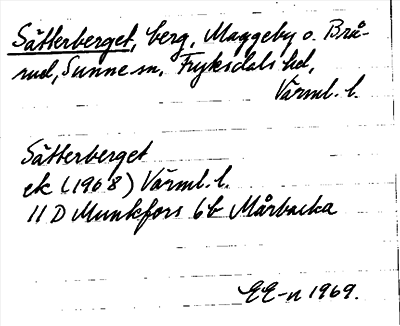 Sätterberget, berg, Maggeby o. Brå-
rud, Sunne sn, Fryksdals hd,
Värml. l.
Sätterberget
ek (1968) Värml. l.
11 D Munkfors 6b Mårbacka
EE-n 1969.